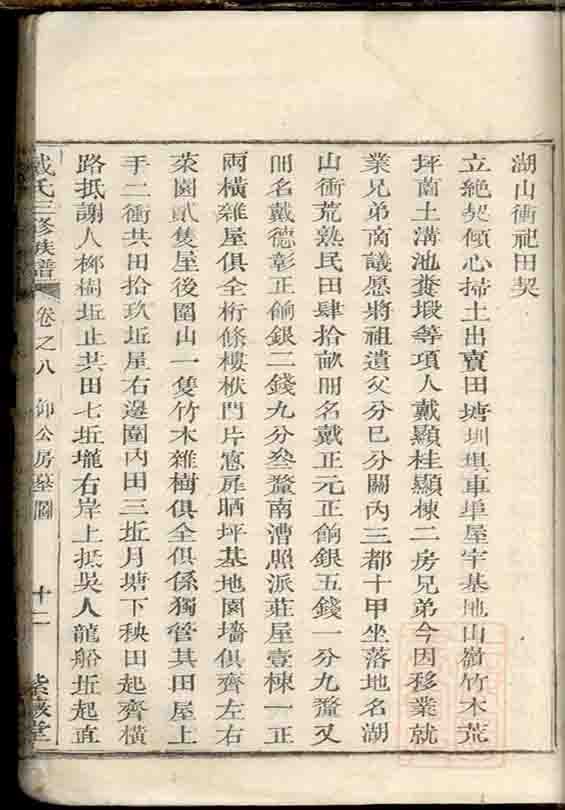 湖山衝祀田契
立絶契傾心掃土出賣田塘圳垻車埠屋宇基地山嶺竹木荒
坪菌土溝池糞塅等項人戴顯桂顯棟二房兄弟今因移業就
業兄弟商議愿將祖遺父分巳分關內三都十甲坐落地名湖
山衝荒熟民田肆拾畝冊名戴正元正餉銀五錢一分九釐又
冊名戴德彰正餉銀二錢九分叁釐南漕照派莊屋壹棟一正
兩橫雜屋俱全桁條樓栿門片窻扉晒坪基地園墻俱齊左右
菜園貳隻屋後圍山一隻竹木雜樹俱全俱係獨管其田屋上
手二衝共田拾玖坵屋右邊圍內田三坵月塘下秧田起齊橫
路抵謝人栁樹坵止共田七坵壠右岸上抵吳人龍船坵起直
戴氏三修族譜 卷之八 仰公房墓圖 十二 紫巖堂